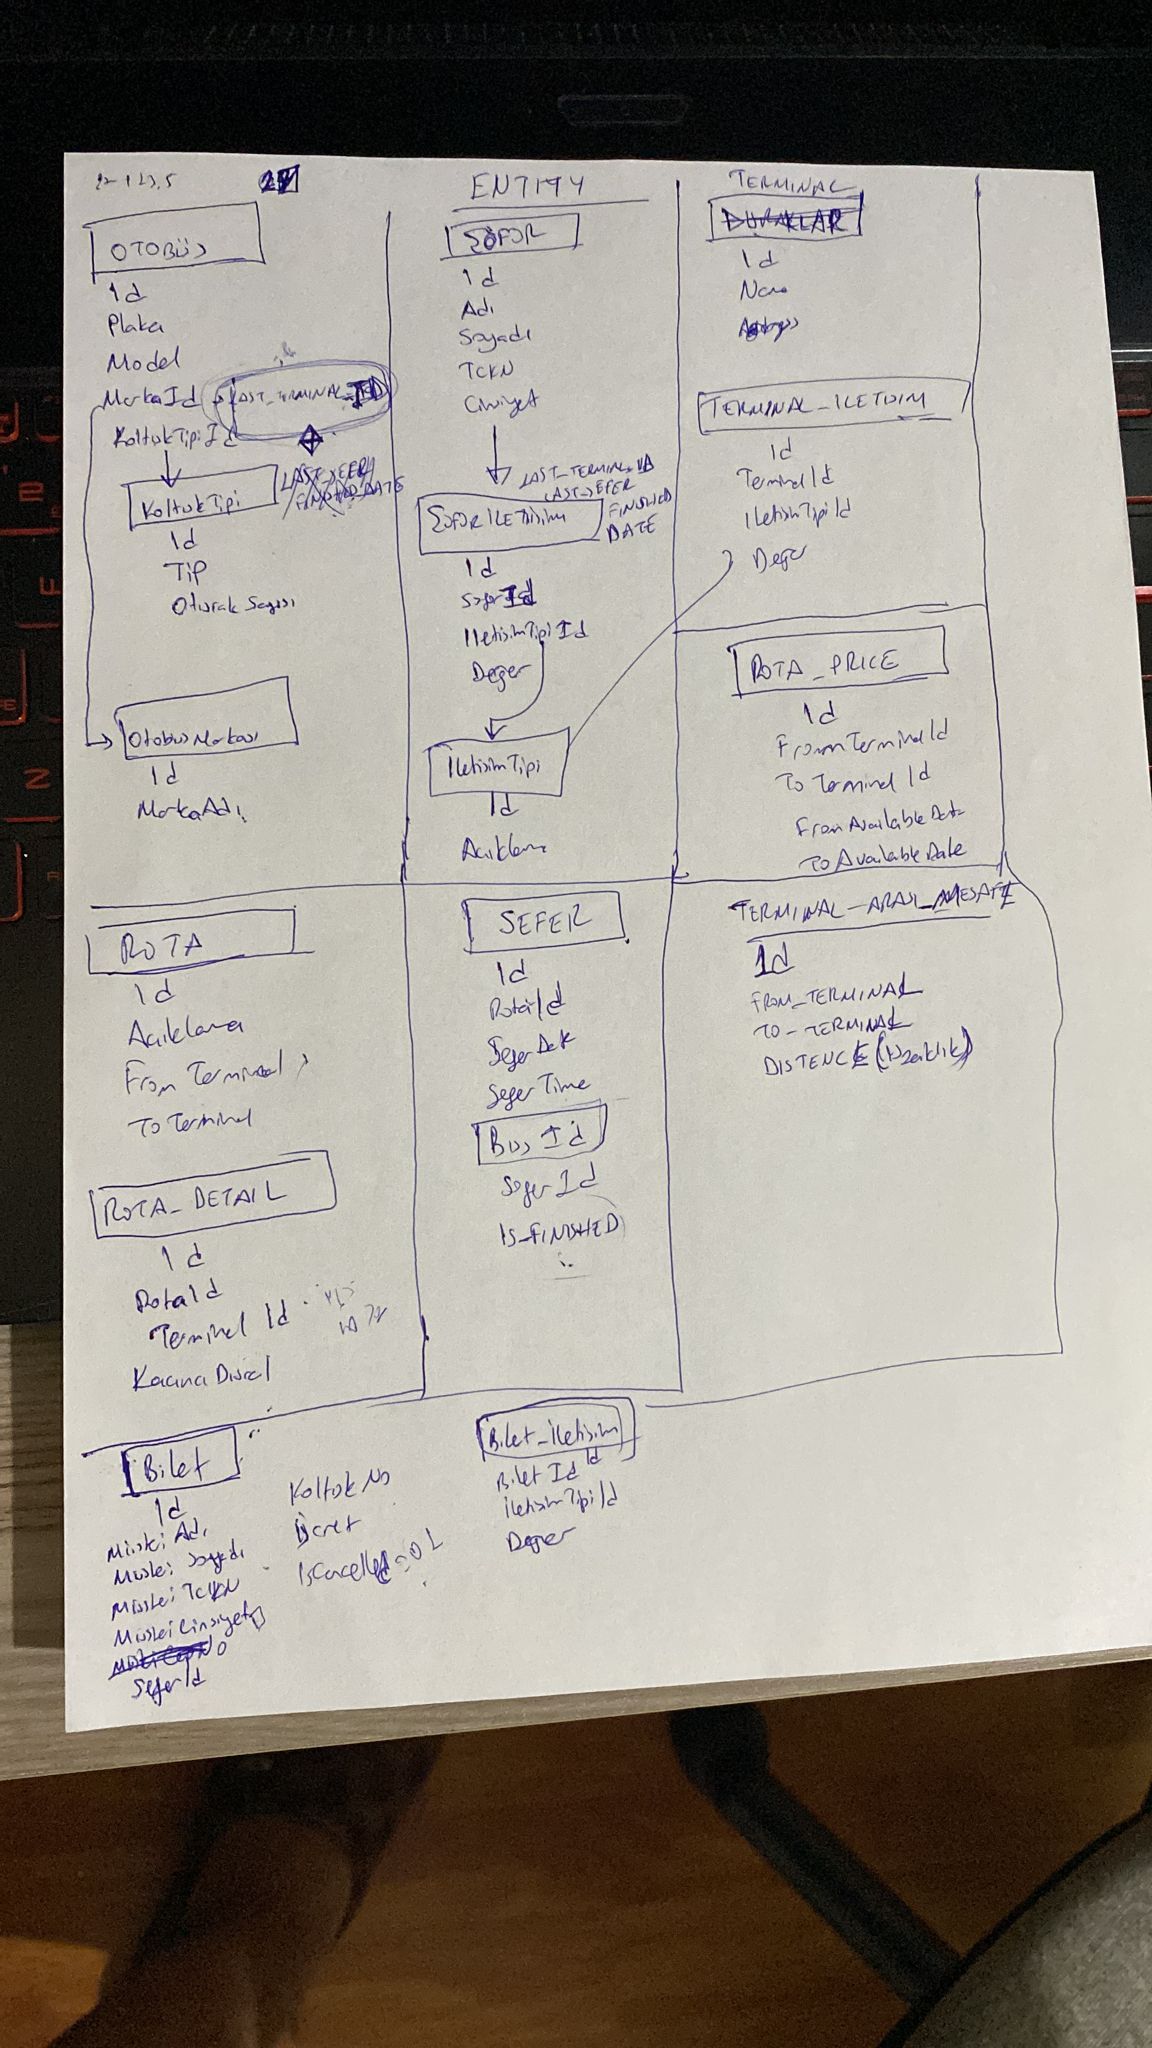 ENTITY
OTOBÜS
Id
Plaka
Model
MarkaId
LAST_TERMINAL_ID
KoltukTipiId
KoltukTipi
Id
Tip
Oturak Sayısı
OtobusMarkası
Id
MarkaAdı
ŞÖFÖR
Id
Adı
Soyadı
TCKN
Cinsiyet
LAST_TERMINAL_ID
LAST_SEFER
FINISHED
DATE
Id
IletisimTipiId
Değer
IletisimTipi
Id
Acıklama
TERMINAL
DURAKLAR
Id
Name
TERMINAL_ILETISIM
Id
TerminalId
IletisimTipiId
Değer
ROTA_PRICE
Id
FromTerminalId
To TerminalId
FromAvailableDate
To AvailableDate
ROTA
Id
Acıklama
From Terminal
To Terminal
ROTA_DETAIL
Id
RotaId
Terminal Id
SEFER
Id
RotaId
Sefer Date
Sefer Time
Bus Id
IS_FINISHED
TERMINAL-ARASI_MESAFE
Id
FROM_TERMINAL
TO_TERMINAL
DISTENCE (Uzaklik)
Bilet
Id
Müsteri Adı
Müsteri Soyadı
Müsteri TCKN
Müsteri Cinsiyet
SeferId
Koltuk No
Ücret
Bilet_iletisim
Id
Bilet Id
iletisimTipiId
Değer